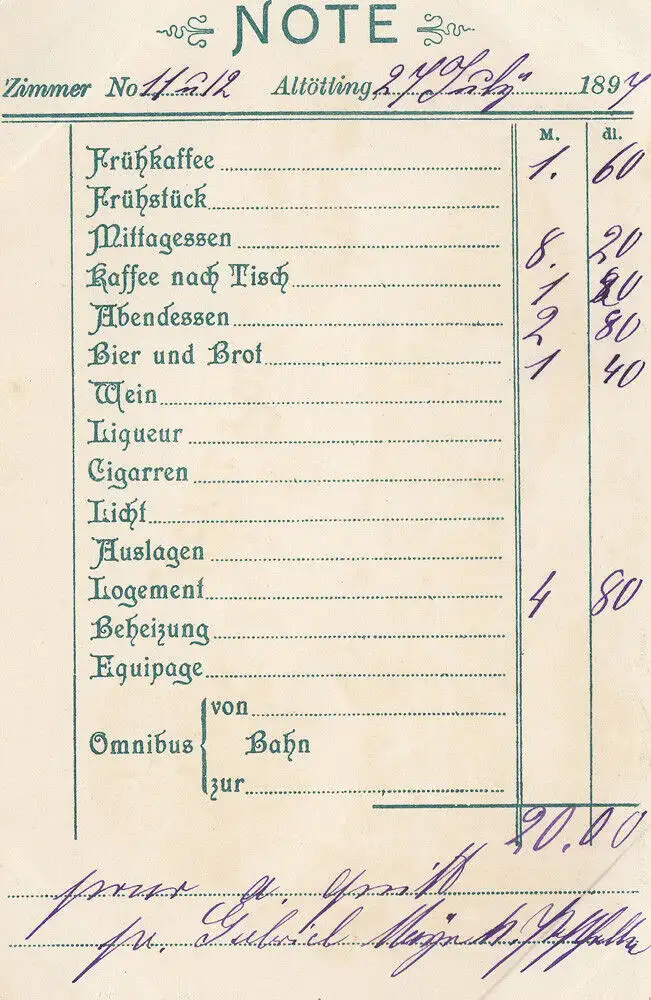 NOTE
Zimmer No 11 u 12 Altötting, 27 July 1897
M. dl.
Frühkaffee 1. 60
Frühstück
Mittagessen 8. 20
Kaffee nach Tisch 1 20
Abendessen 2 80
Bier und Brot 1 40
Wein
Liqueur
Cigarren
Licht
Auslagen
Logement 4 80
Beheizung
Equipage
von
Omnibus Bahn
zur
20.00
pour a. quitt
pr. Gabriel